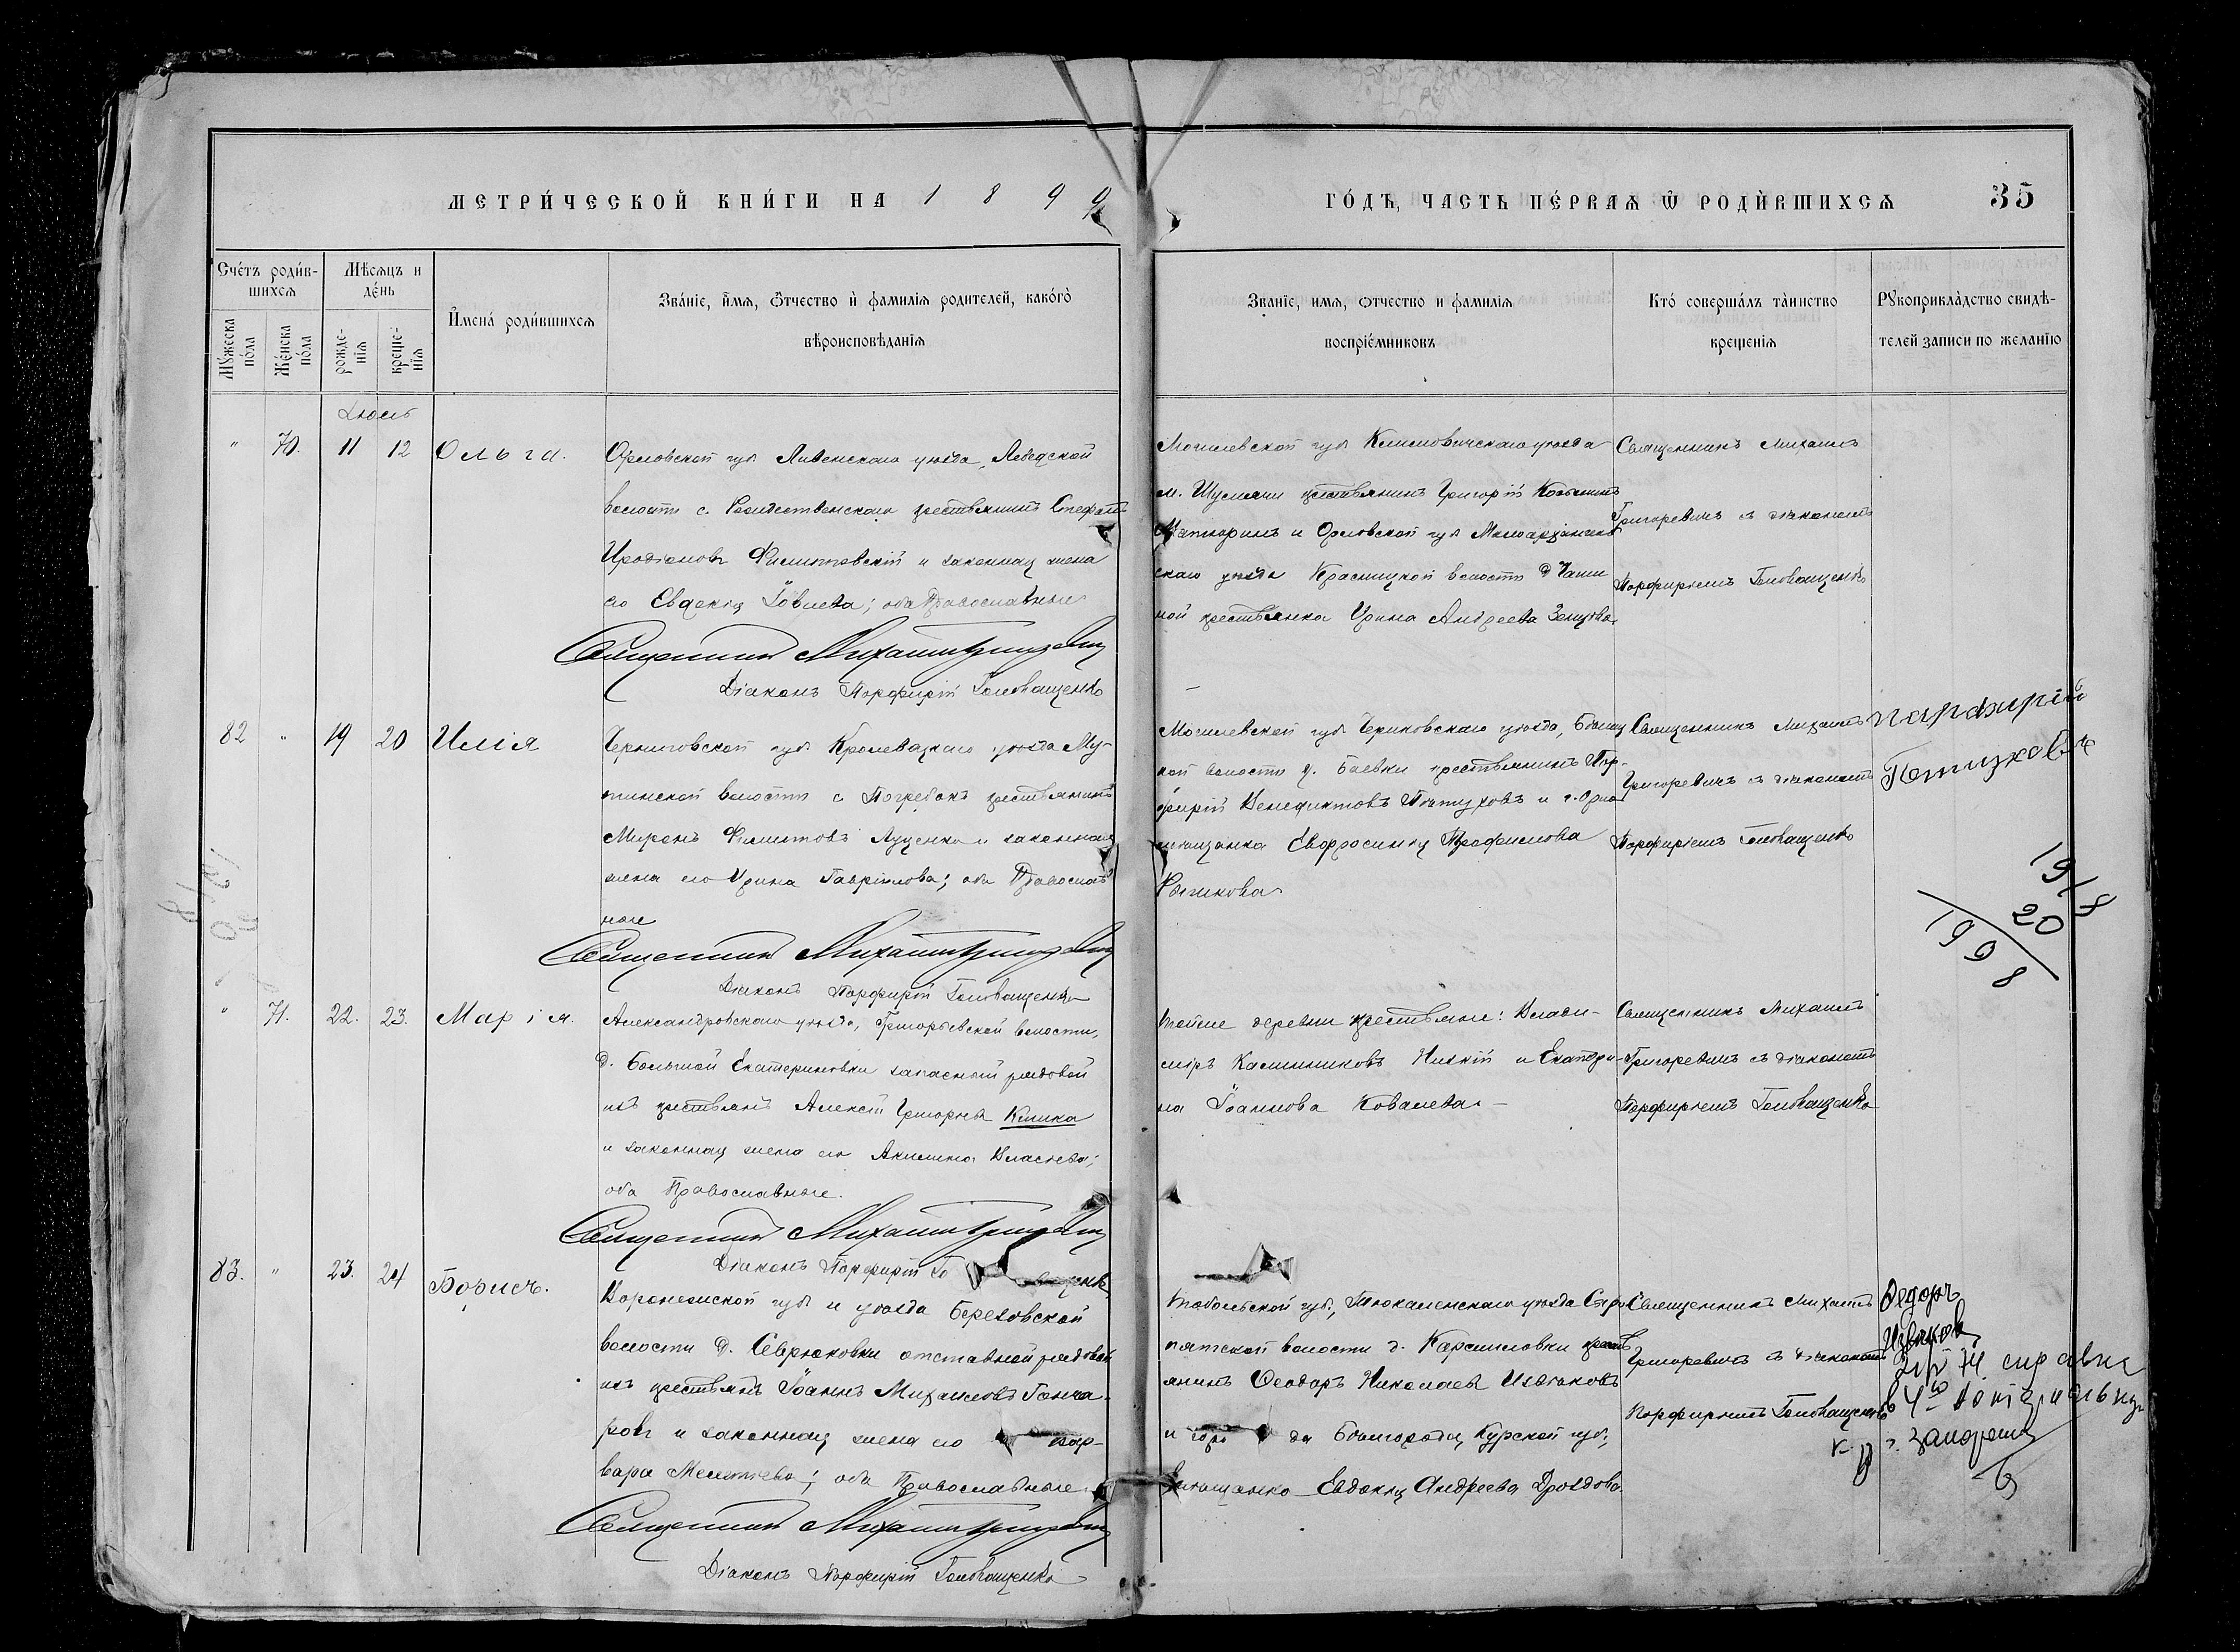 МЕТРИ́ЧЕСКОЙ КНИ́ГИ НА 1899
ГО́ДЪ, ЧАСТЬ ПЕ́РВАѦ Ѿ РОДИ́ВШИХСѦ 35
Сче́тъ роди́в-
шихсѧ
Мѣ́сѧцъ и
де́нь
Мꙋжеска
по́ла
Же́нска
по́ла
рожде-
нїѧ
креще-
нїѧ
И҆мена́ роди́вшихсѧ
Зва́нїе, и҆́мѧ, ѻ҆́тчество и҆ фами́лїѧ роди́телей, како́гѡ
вѣроисповѣ́данїѧ
Званїе, имѧ, ѻтчество и фамилїѧ
воспрїе́мниковъ
Кто̀ соверша́лъ та́инство
крещенїѧ
Рꙋкоприкла́дство свидѣ-
телей записи по желанїю
Іюль
" 70. 11 12 Ольга.
Орловской губ Ливенскаго уѣзда,
волости с. Рождественскаго крестьянинъ Стефанъ
Иродіоновъ и законная жена
его Евдокія Іовлева; оба Православные
Священникъ Михаилъ Григоревич
Діаконъ Порфирій Головащенко
Могилевской губ Климовичскаго уѣзда
м. Шумячи крестьянинъ Григорій
и Орловской губ Малоархангель
скаго уѣзда волости д
ной крестьянка Ирина Андреева
Священникъ Михаилъ
Григоревичъ съ діакономъ
Порфиріемъ Головащенко
82 " 19 20 Илія
Черниговской губ Кролевецкаго уѣзда Му-
тинской волости с Погребокъ крестьянинъ
Миронъ Филиповъ Луценко и законная
жена его Ирина Гавріилова; оба Православ
ные
Священникъ Михаилъ Григоревич
Діаконъ Порфирій Головащенко
Могилевской губ Чериковскаго уѣзда,
кой волости д. Баевки крестьянинъ Пор-
фирій Венедиктовъ Пѣтуховъ и г. Орла
мѣщанка Евфросинія Трофимова
Священникъ Михаилъ
Григоревичъ съ діакономъ
Порфиріемъ Головащенко
парфирій
Петухов
1918
20
1998
" 71. 22. 23. Марія.
Александровскаго уѣзда, Григорьевской волости,
д. Большой Екатериновки запасный рядовой
изъ крестьянъ Алексій Григорьевъ Клика
и законная жена его Акилина Власіева;
оба Православные.
Священникъ Михаилъ Григоревич
Діаконъ Порфирій Го
тойже деревни крестьяне: Влади-
міръ Калинниковъ и Екатери-
на Іоаннова Ковалева
Священникъ Михаилъ
Григоревичъ съ діакономъ
Порфиріемъ Головащенко
83. " 23. 24 Борисъ.
Воронежской губ и уѣзда Березовской
волости д. Севрюковки отставной рядовой
изъ крестьянъ Іоаннъ Михаиловъ Гонча
ровъ и законная жена его Вар-
вара Мелетіева; оба Православные.
Священникъ Михаилъ Григоревич
Діаконъ Порфирій Головащенко
Тобольской губ., Тюкалинскаго уѣзда
волости д. крестъ
янинъ Ѳеодоръ Николаевъ Извѣковъ
и горо да Бѣлгорода, Курской губ;
мѣщанка Евдокія Андреева Дроздова
Священникъ Михаилъ
Григоревичъ съ діакономъ
Порфиріемъ Головащенко
Ѳедоръ
Извѣков
справка